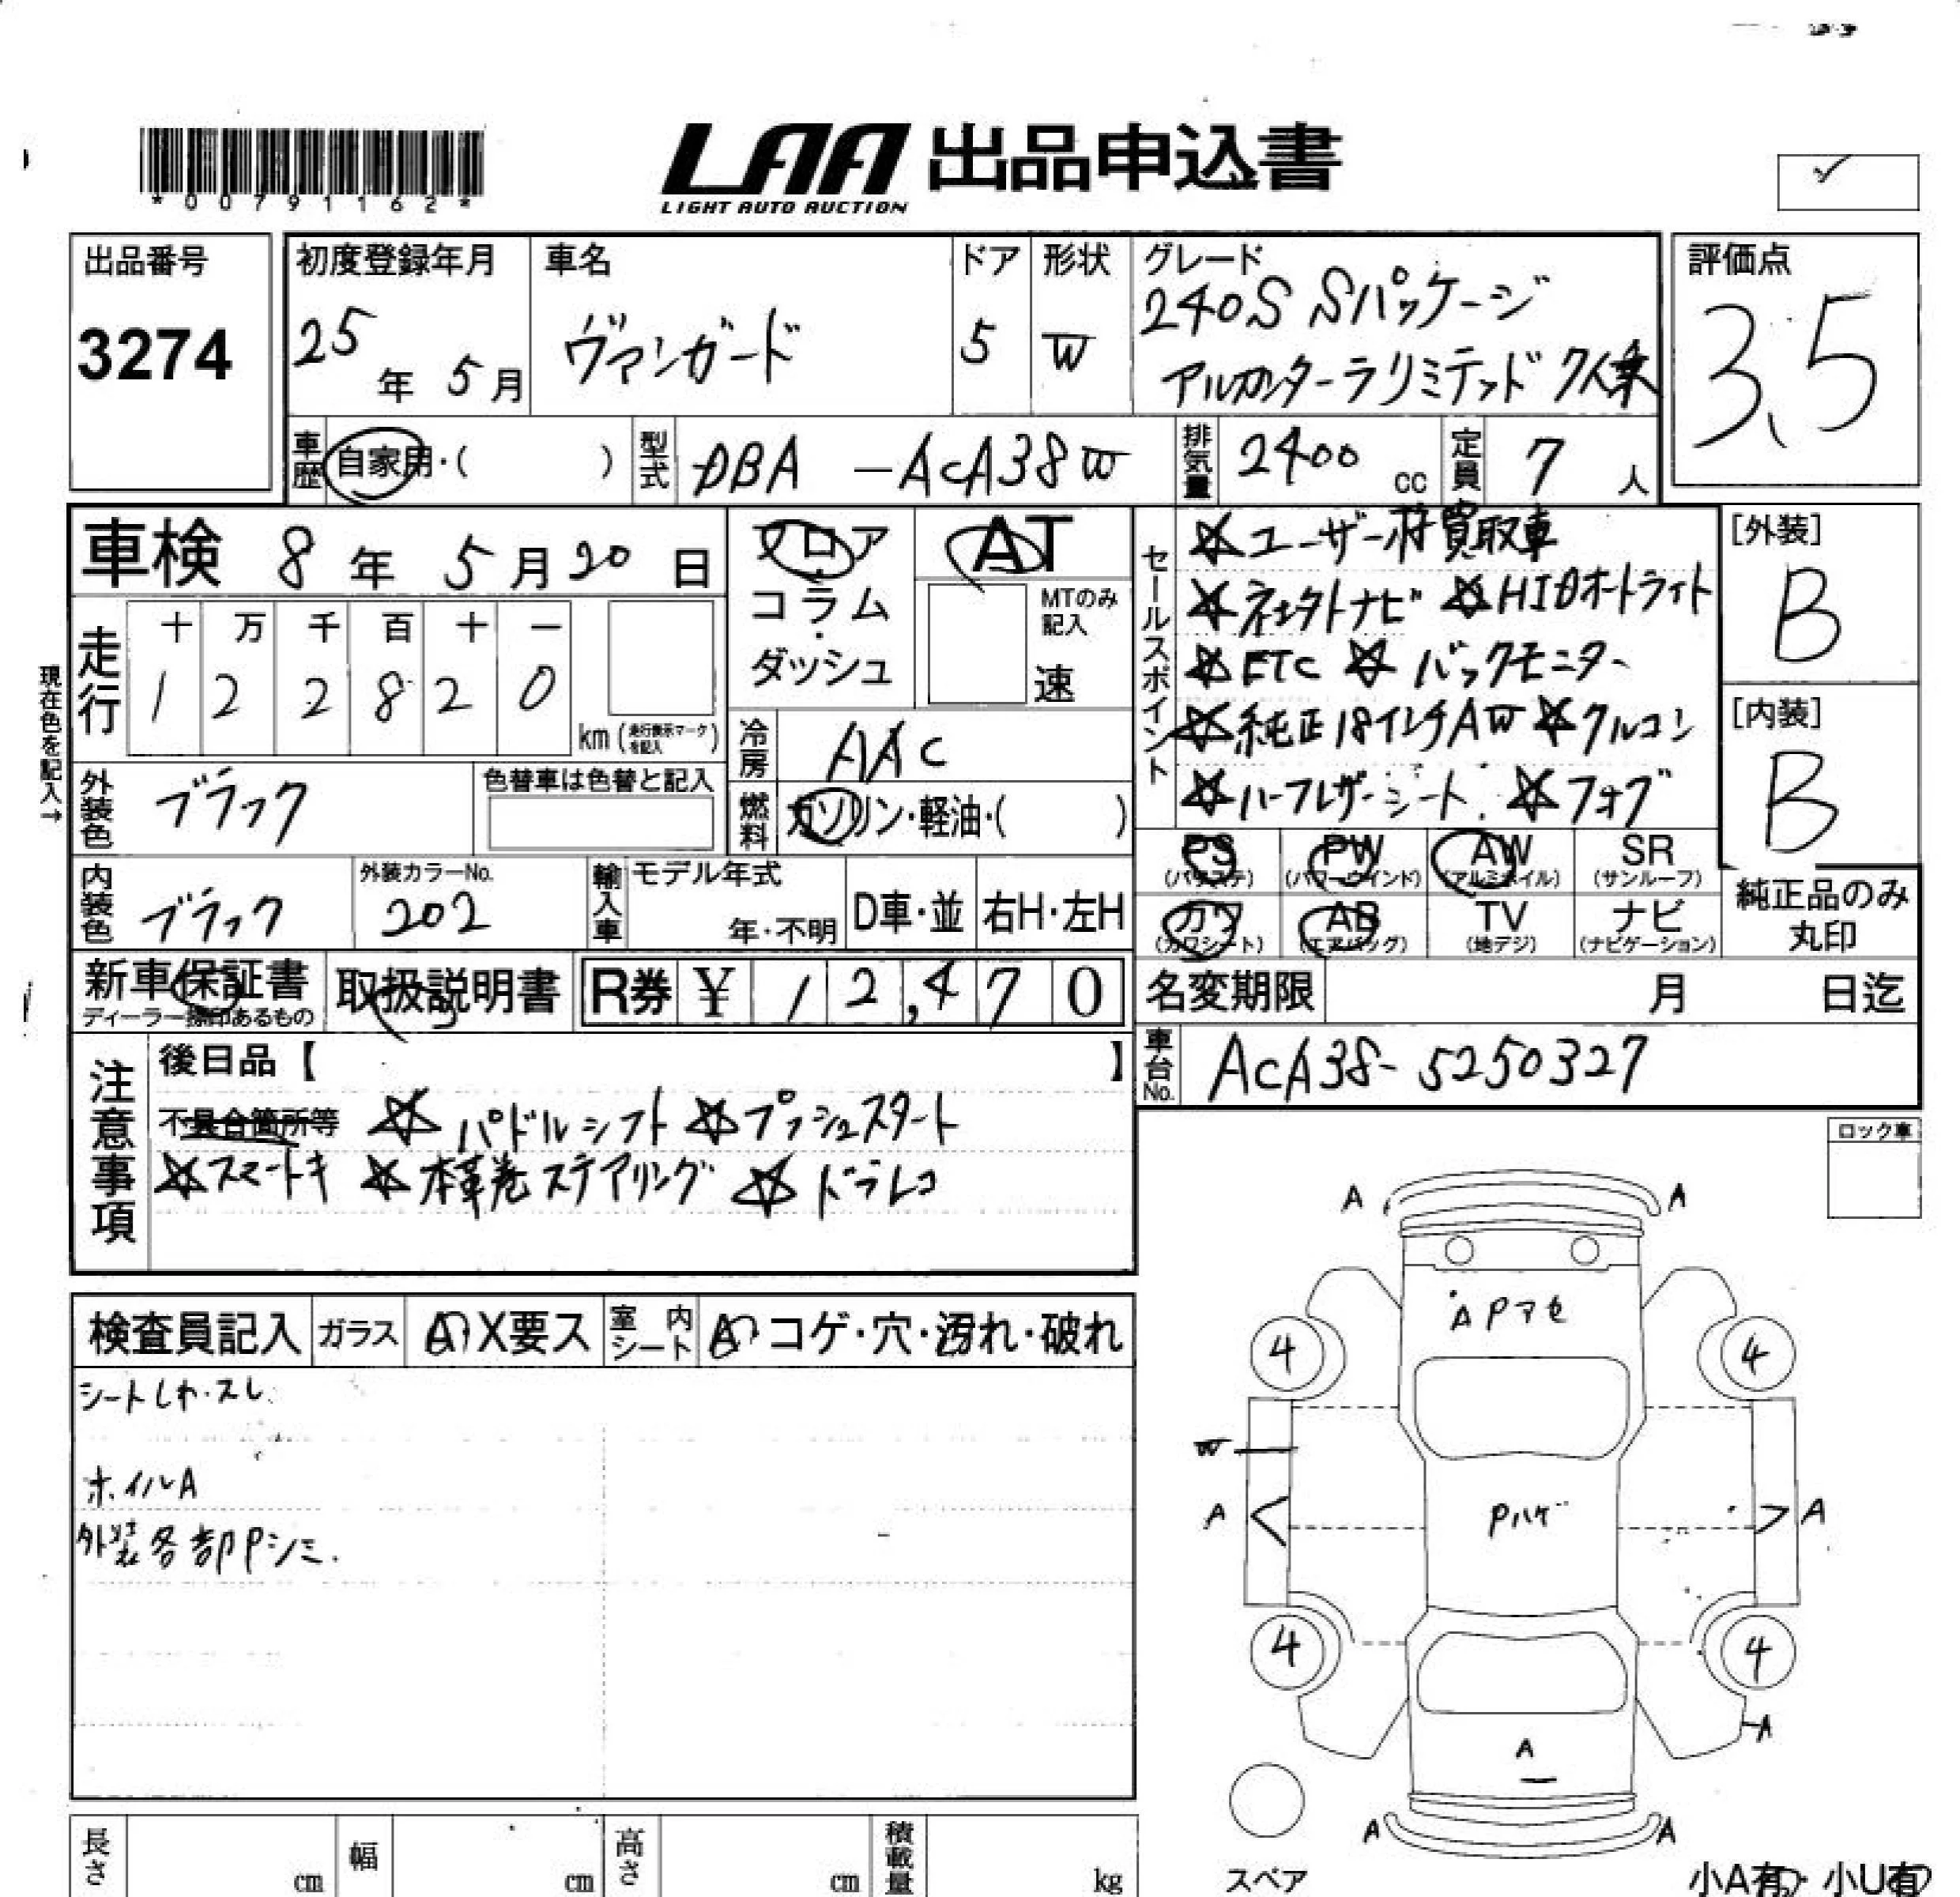 *00791162*
LAA 出品申込書
LIGHT AUTO AUCTION
✓
出品番号
3274
初度登録年月
25年 5月
車名
ヴァンガード
ドア
5
形状
W
グレード
240S Sパッケージ
アルカンターラリミテッド 7人乗
評価点
3.5
車歴 自家用・( )
型式 DBA-ACA38W
排気量 2400 cc
定員 7 人
車検 8年 5月20日
フロア・コラム・ダッシュ
AT
MTのみ記入
速
セールスポイント
☆ユーザー様買取車
☆ネスタトナビ ☆HIDオートライト
☆ETC ☆バックモニター
☆純正18インチAW ☆クルコン
☆ハーフレザーシート ☆フォグ
[外装]
B
[内装]
B
現在色を記入→
走行
十 万 千 百 十 一
1 2 2 8 2 0
km (走行表示マークを記入)
冷房 AAC
燃料 ガソリン・軽油・( )
外装色 ブラック
色替車は色替と記入
PS (パワステ)
PW (パワーウインド)
AW (アルミホイル)
SR (サンルーフ)
カワ (カワシート)
AB (エアバッグ)
TV (地デジ)
ナビ (ナビゲーション)
純正品のみ丸印
内装色 ブラック
外装カラーNo.
202
輸入車
モデル年式
年・不明
D車・並
右H・左H
新車保証書
ディーラー捺印あるもの
取扱説明書
R券 ¥ 12,470
名変期限 月 日迄
車台No. ACA38-5250327
注意事項
後日品【 】
不具合箇所等 ☆パドルシフト ☆プッシュスタート
☆スマートキ ☆本革巻ステアリング ☆ドラレコ
ロック車
検査員記入
ガラス
X要ス
室内シート
コゲ・穴・汚れ・破れ
シートしわ・スレ
ホイルA
外装各部Pシミ.
A A
A Pアセ
4 4
W
A Pハゲ A
4 4
A
A
A A
スペア
小A有・小U有
長さ cm
幅 cm
高さ cm
積載量 kg